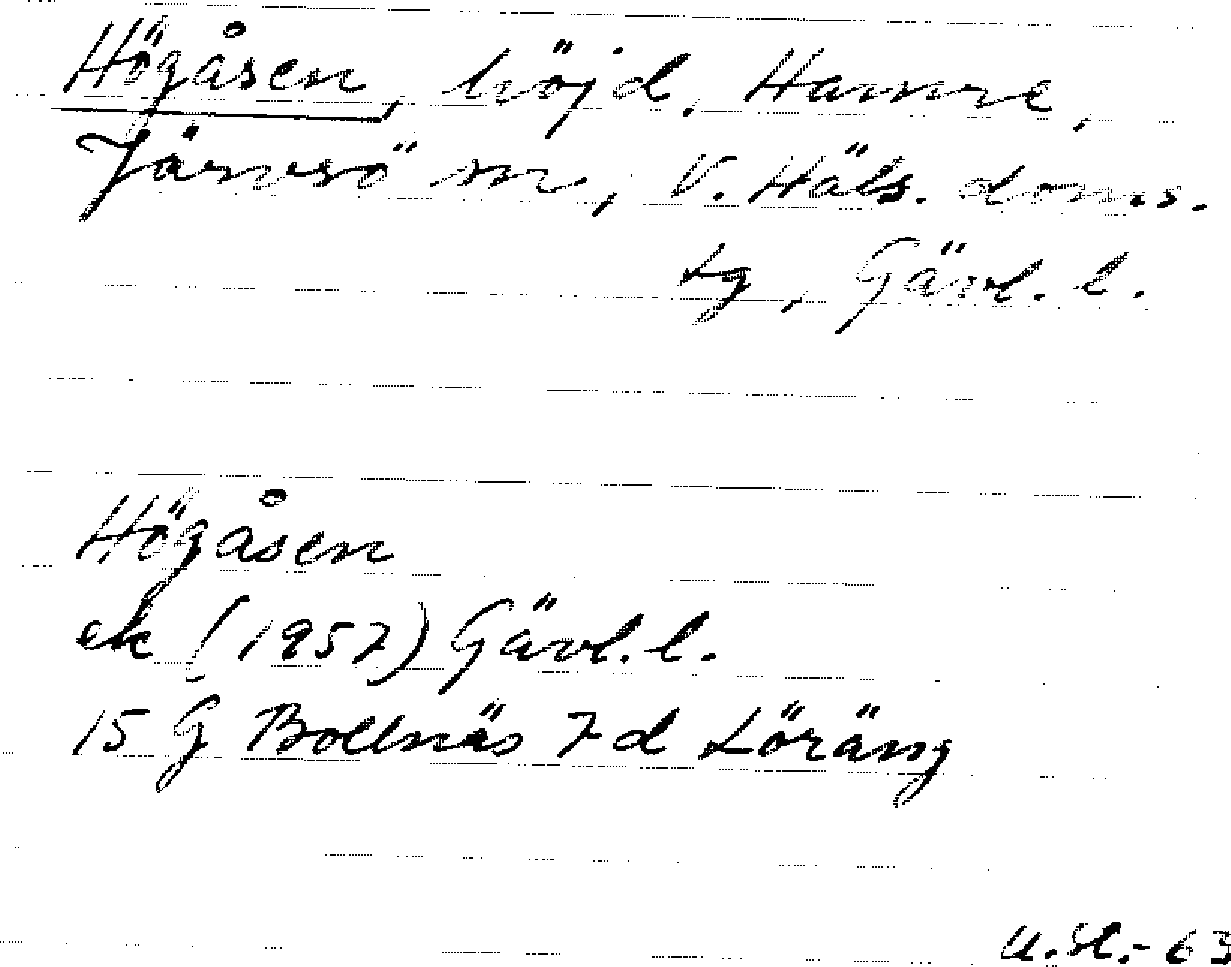 Högåsen, höjd, Hamre,
Järvsö sn, V. Häls. doms.
tg, Gävl. l.
Högåsen
ek (1957) Gävl. l.
15 G Bollnäs 7 d Löräng
U.Sl.-63